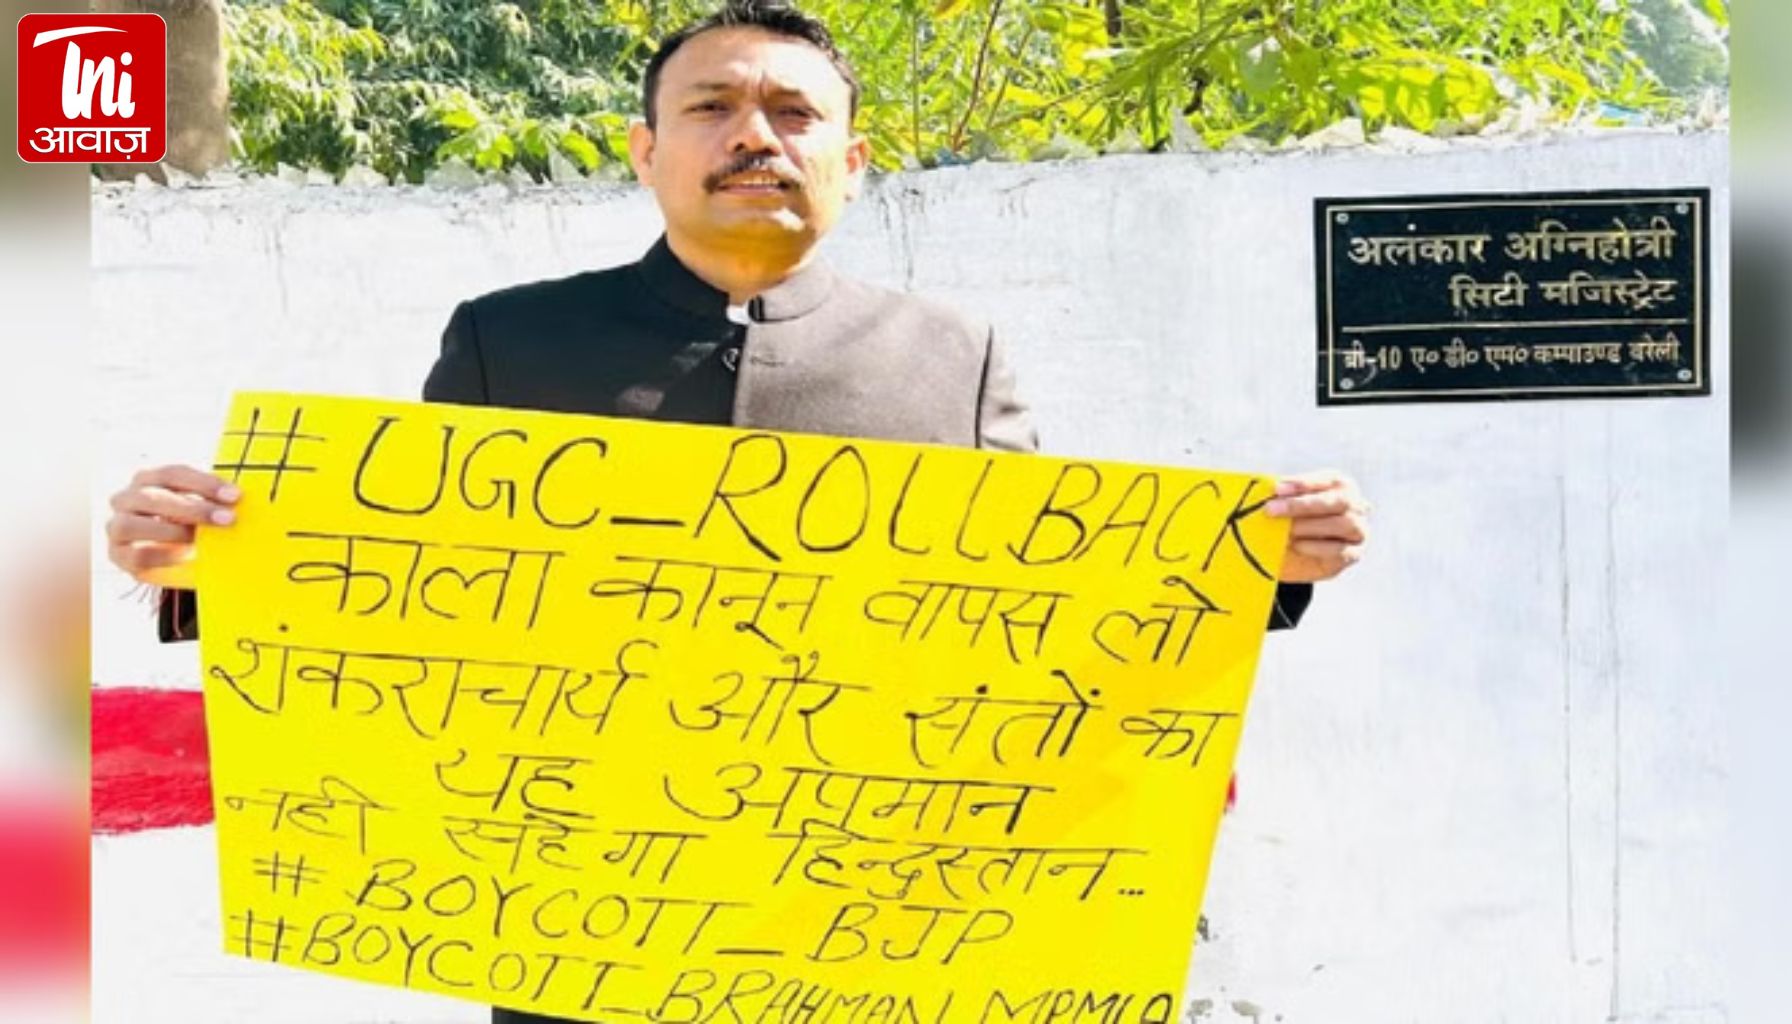 Uni
आवाज़
अलंकार अग्निहोत्री
सिटी मजिस्ट्रेट
बी-10 ए० डी० एम० कम्पाउण्ड बरेली
#UGC_ROLLBACK
काला कानून वापस लो
शंकराचार्य और संतों का
यह अपमान
नहीं सहेगा हिन्दुस्तान...
#BOYCOTT_BJP
#BOYCOTT_BRAHMAN_MPMLA